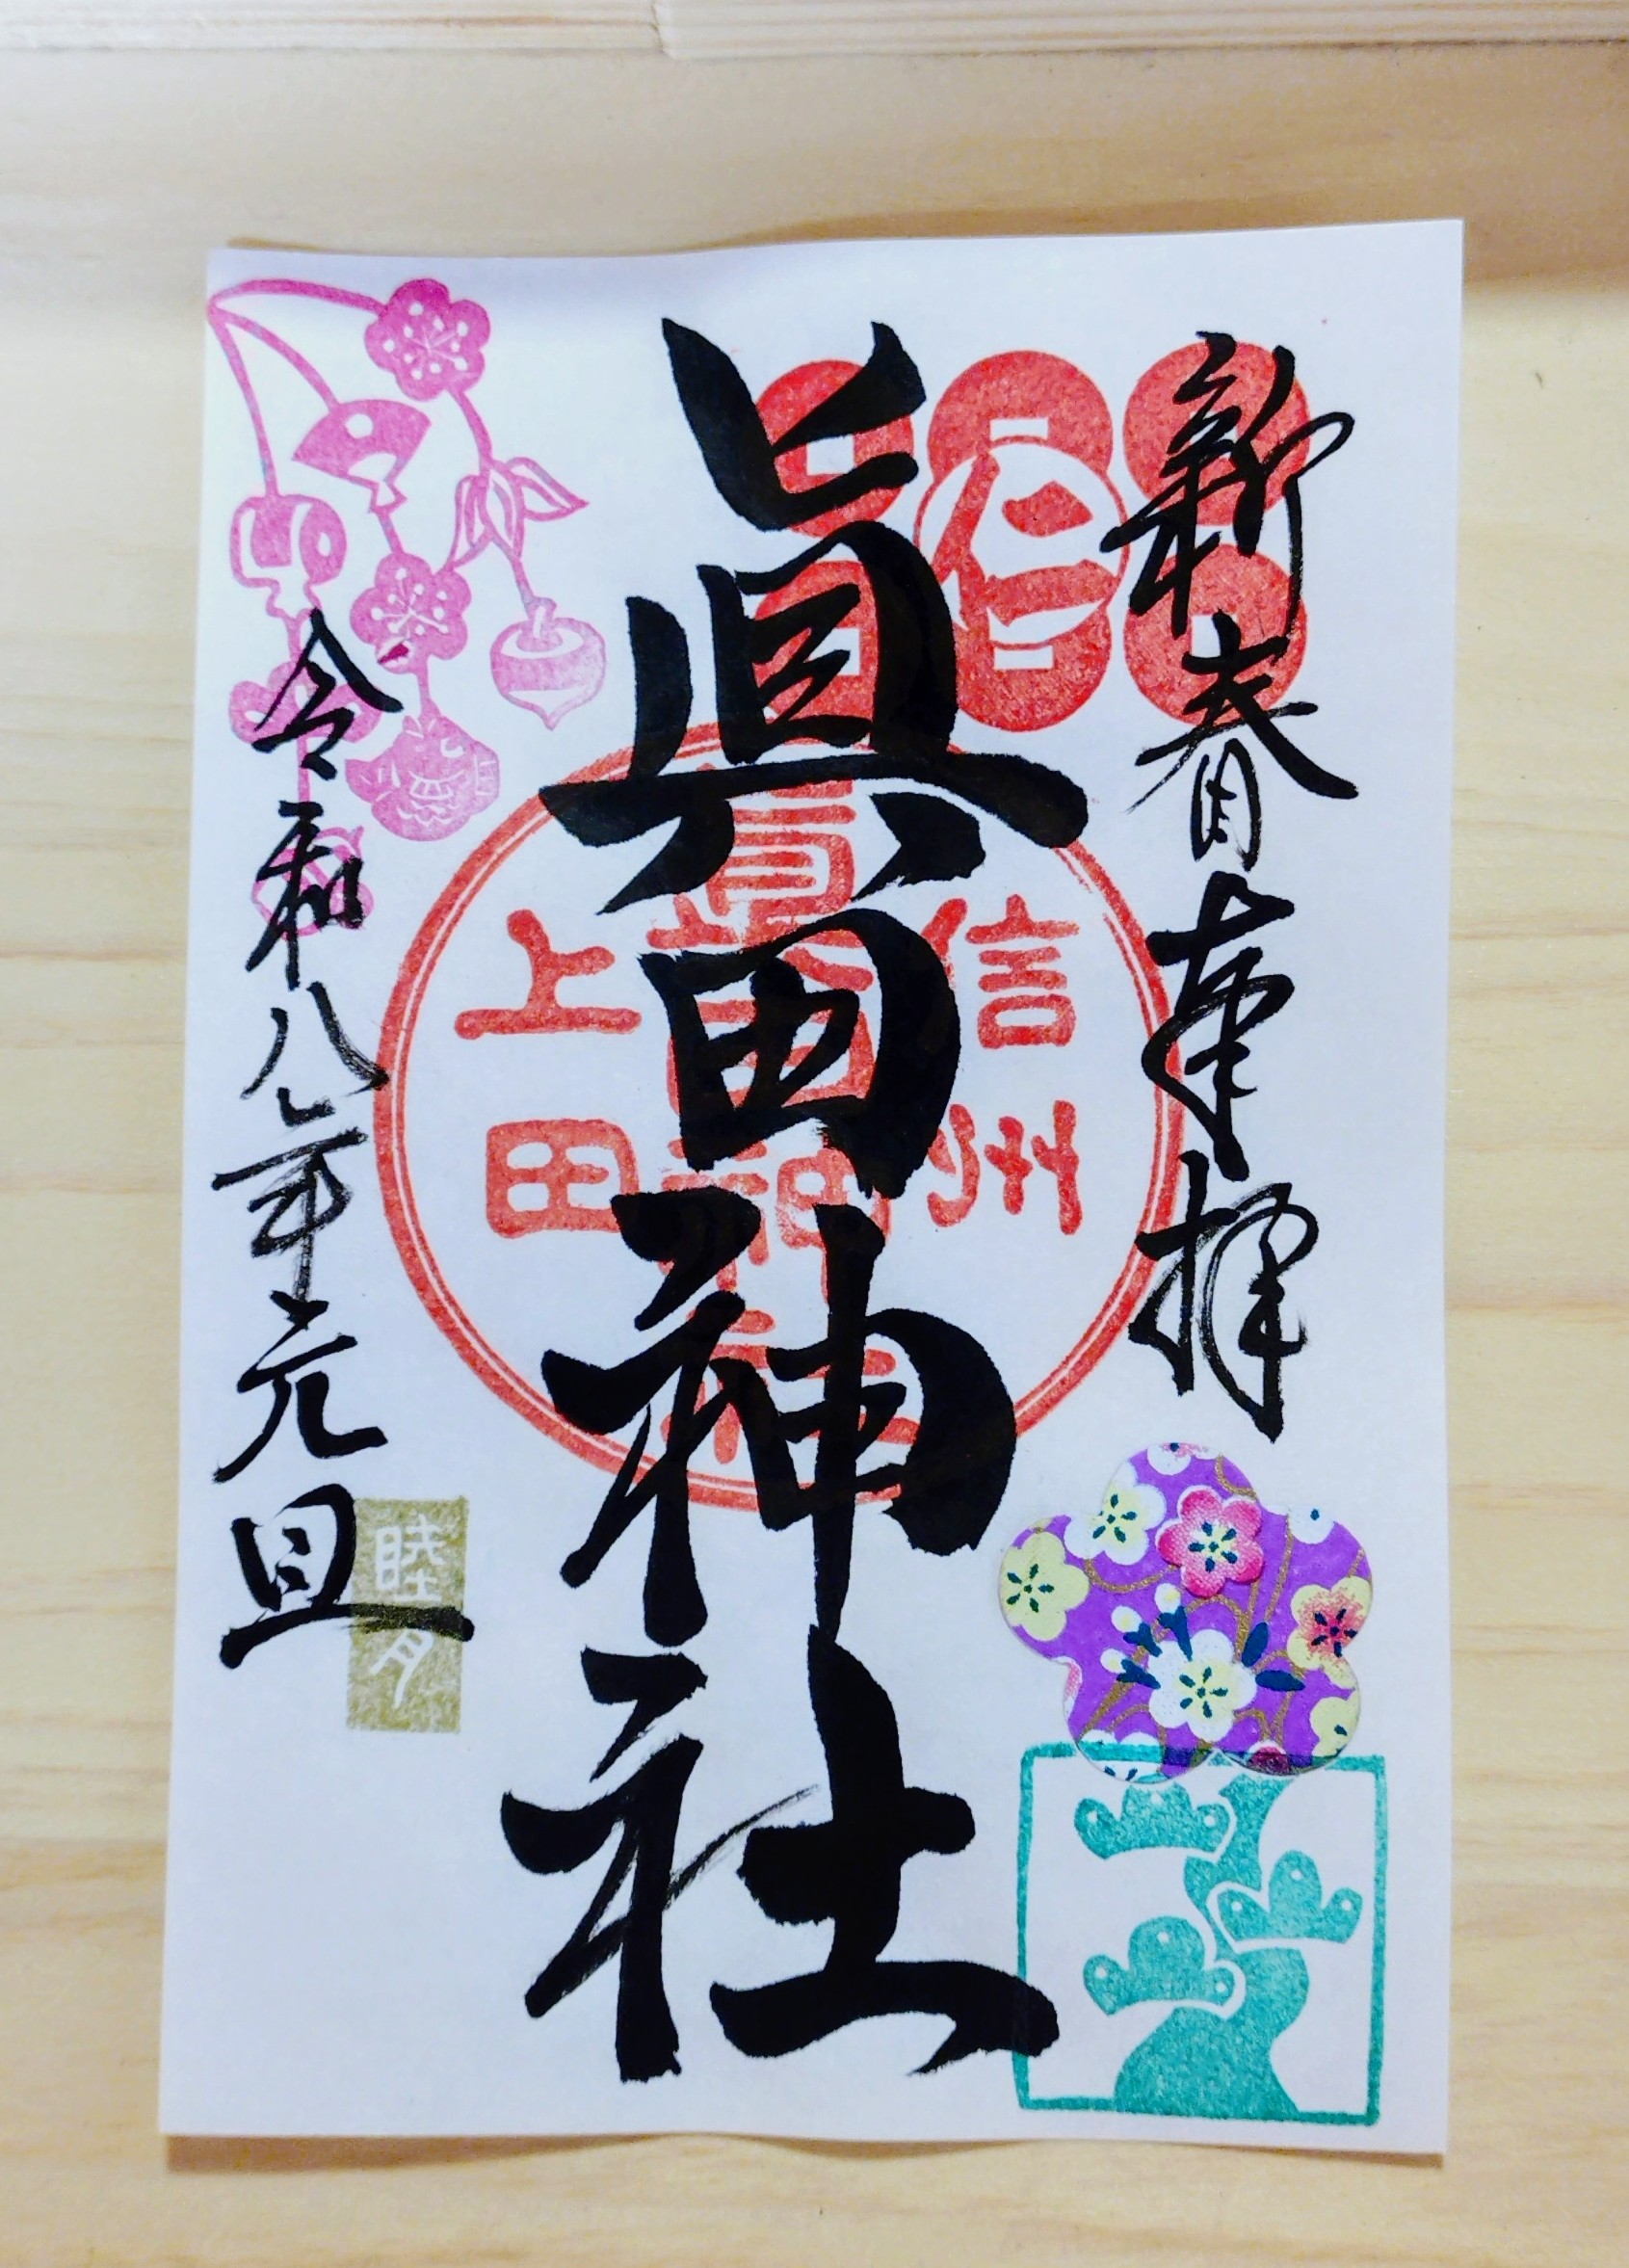 新春奉拝
仁
眞田神社
信州
眞田神社
上田
令和八年元旦
睦月